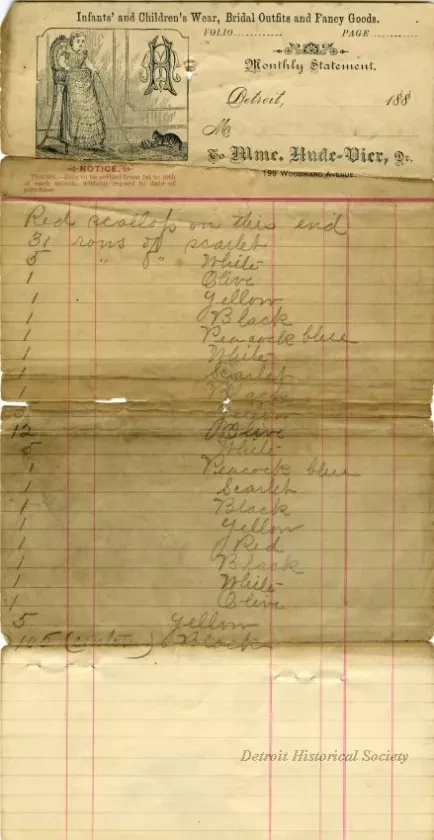 Infants' and Children's Wear, Bridal Outfits and Fancy Goods.
FOLIO............ PAGE..........
Monthly Statement.
Detroit, 188
M
To Mme. Hude-Vier, Dr.
199 WOODWARD AVENUE.
NOTICE.
TERMS.—Bills to be settled from 1st to 10th
of each month, without regard to date of
purchase.
Red scallop on this end
31 rows of scarlet
5 " of " White
1 Olive
1 Yellow
1 Black
1 Peacock blue
1 White
1 Scarlet
1 Black
12 Olive
5 White
1 Peacock blue
1 Scarlet
1 Black
1 Yellow
1 Red
1 Black
1 White
1 Olive
5 Yellow
105 (center) Black
Detroit Historical Society